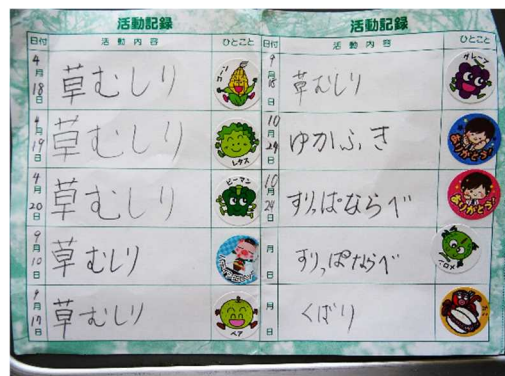 活動記録
日付 活動内容 ひとこと
4月18日 草むしり
4月19日 草むしり レタス
4月20日 草むしり ピーマン
9月10日 草むしり
9月17日 草むしり ペア
活動記録
日付 活動内容 ひとこと
9月18日 草むしり グレープ
10月24日 ゆかふき ありがとう!
10月24日 すりっぱならべ ありがとう!
月日 すりっぱならべ メロン
月日 くばり